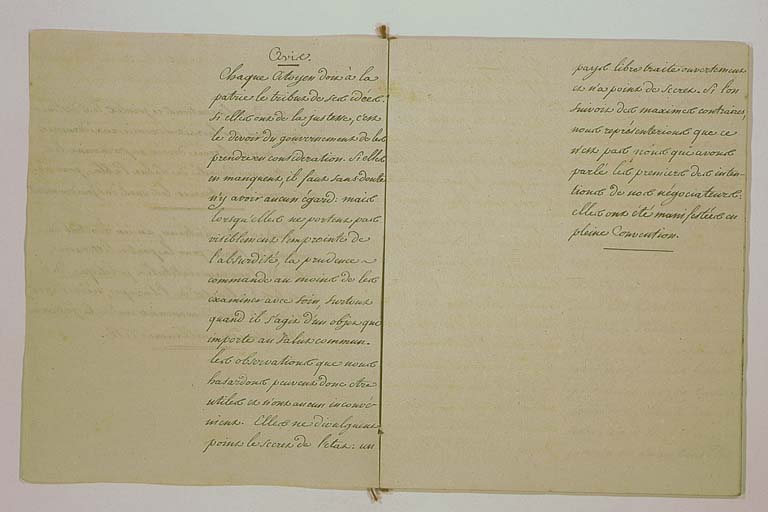 Avis.
Chaque Citoyen doit à la
patrie le tribut de ses idées.
Si elles ont de la justesse, c'est
le devoir du gouvernement de les
prendre en considération. Si elles
en manquent, il faut sans doute
n'y avoir aucun égard: mais
lorsqu'elles ne portent pas
visiblement l'empreinte de
l'absurdité, la prudence
commande au moins de les
examiner avec soin, surtout
quand il s'agit d'un objet qui
importe au salut commun.
Les observations que nous
hasardons peuvent donc être
utiles et n'ont aucun inconvé-
nient. Elles ne divulguent
point le secret de l'état: un
pays libre traite ouvertement
et n'a point de secret. Si l'on
suivoit des maximes contraires,
nous représenterions que ce
n'est pas nous qui avons
parlé les premiers des inten-
tions de nos négociateurs:
elles ont été manifestées en
pleine Convention.